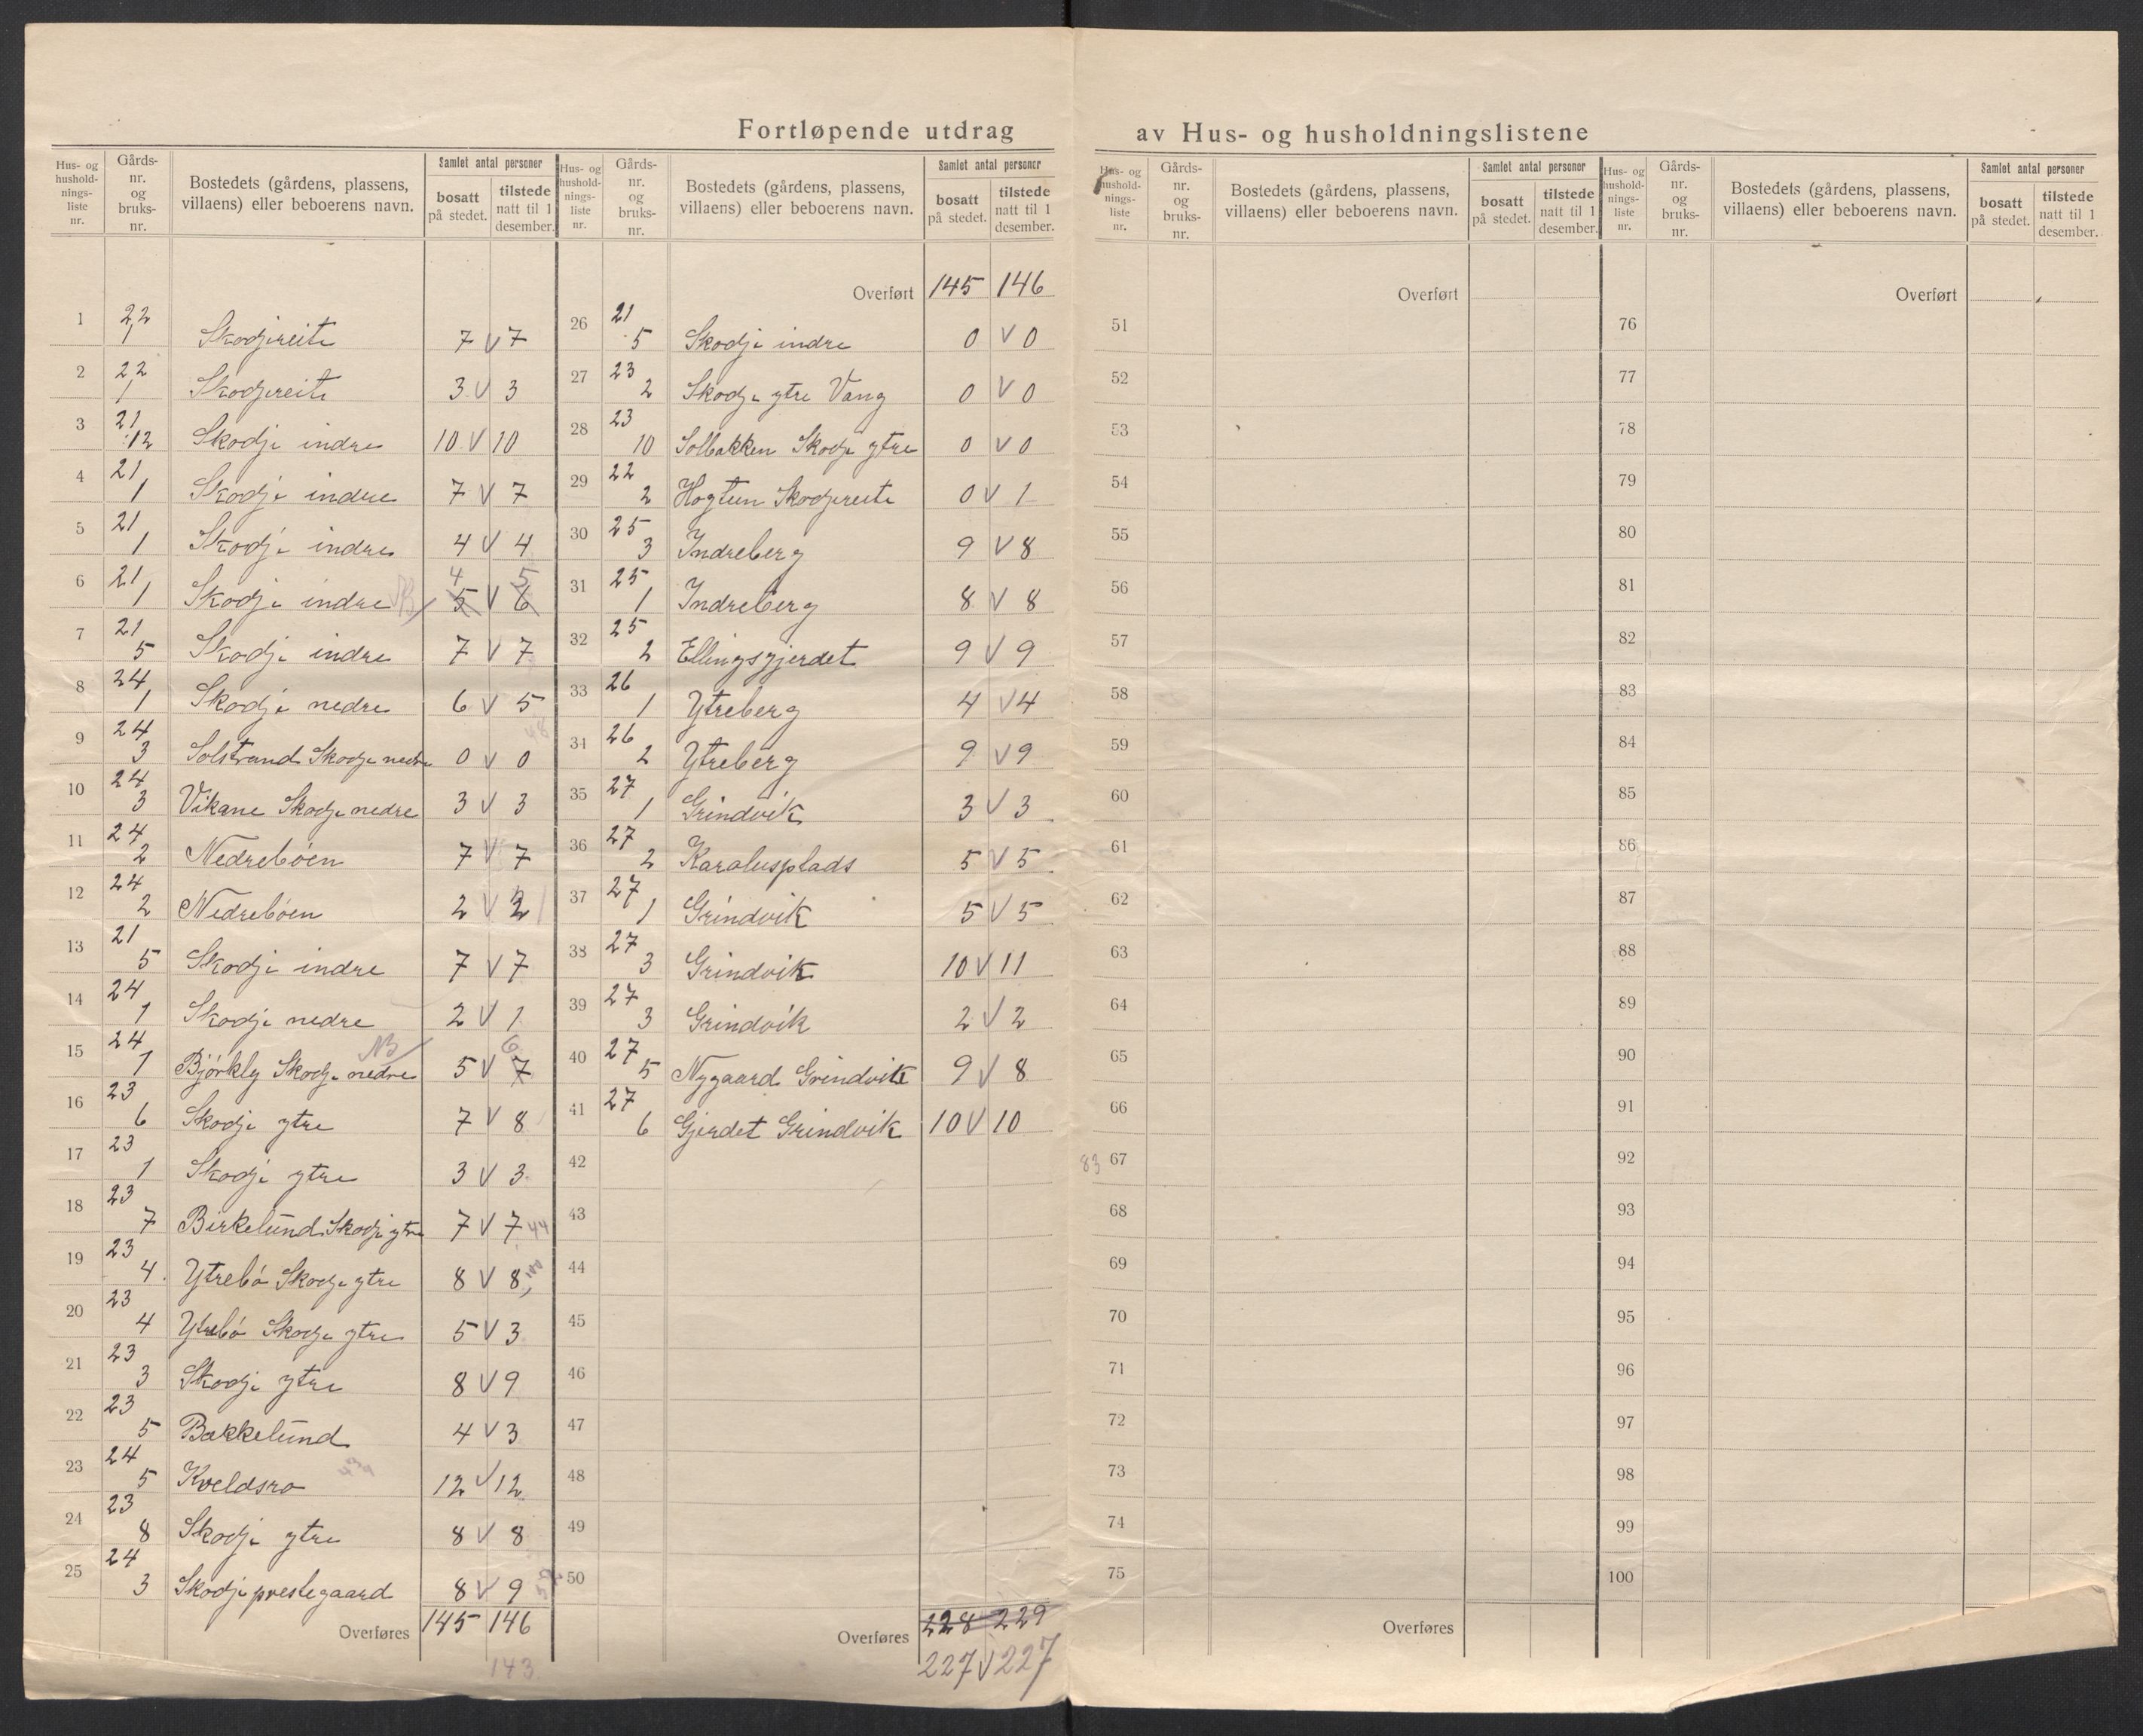 Fortløpende utdrag av Hus- og husholdningslistene
Hus- og husholdnings-liste nr. | Gårds-nr. og bruks-nr. | Bostedets (gårdens, plassens, villaens) eller beboerens navn. | Samlet antal personer | bosatt på stedet. | tilstede natt til 1 desember.
1 22 1 Skodjereite 7 V 7
2 22 1 Skodjereite 3 V 3
3 21 12 Skodje indre 10 V 10
4 21 1 Skodje indre 7 V 7
5 21 1 Skodje indre 4 V 4
4 5
6 21 1 Skodje indre NB 5 V 6
7 21 5 Skodje indre 7 V 7
8 24 1 Skodje nedre 6 V 5
48
9 24 3 Solstrand Skodje nedre 0 V 0
10 24 3 Vikane Skodje nedre 3 V 3
11 24 2 Nedrebøen 7 V 7
12 24 2 Nedrebøen 2 V 2
13 21 5 Skodje indre 7 V 7
14 24 1 Skodje nedre 2 V 1
NB 6
15 24 1 Bjørkly Skodje nedre 5 V 7
16 23 6 Skodje ytre 7 V 8
17 23 1 Skodje ytre 3 V 3
18 23 7 Birkelund Skodje ytre 7 V 7 44
19 23 4 Ytrebø Skodje ytre 8 V 8
20 23 4 Ytrebø Skodje ytre 5 V 3
21 23 3 Skodje ytre 8 V 9
22 23 5 Bakkelund 4 V 3
23 24 5 Kveldsro 12 V 12
24 23 8 Skodje ytre 8 V 8
25 24 3 Skodje prestegaard 8 V 9
Overføres 145 146
143
Hus- og husholdnings-liste nr. | Gårds-nr. og bruks-nr. | Bostedets (gårdens, plassens, villaens) eller beboerens navn. | Samlet antal personer | bosatt på stedet. | tilstede natt til 1 desember.
Overført 145 146
26 21 5 Skodje indre 0 V 0
27 23 2 Skodje ytre Vang 0 V 0
28 23 10 Solbakken Skodje ytre 0 V 0
29 22 2 Hogtun Skodjereite 0 V 1
30 25 3 Indreberg 9 V 8
31 25 1 Indreberg 8 V 8
32 25 2 Ellingsgjerdet 9 V 9
33 26 1 Ytreberg 4 V 4
34 26 2 Ytreberg 9 V 9
35 27 1 Grindvik 3 V 3
36 27 2 Karolusplads 5 V 5
37 27 1 Grindvik 5 V 5
38 27 3 Grindvik 10 V 11
39 27 3 Grindvik 2 V 2
40 27 5 Nygaard Grindvik 9 V 8
41 27 6 Gjerdet Grindvik 10 V 10
42
43
44
45
46
47
48
49
50
Overføres 228 229
227 V 227
Hus- og husholdnings-liste nr. | Gårds-nr. og bruks-nr. | Bostedets (gårdens, plassens, villaens) eller beboerens navn. | Samlet antal personer | bosatt på stedet. | tilstede natt til 1 desember.
Overført
51
52
53
54
55
56
57
58
59
60
61
62
63
64
65
66
83 67
68
69
70
71
72
73
74
75
Overføres
Hus- og husholdnings-liste nr. | Gårds-nr. og bruks-nr. | Bostedets (gårdens, plassens, villaens) eller beboerens navn. | Samlet antal personer | bosatt på stedet. | tilstede natt til 1 desember.
Overført
76
77
78
79
80
81
82
83
84
85
86
87
88
89
90
91
92
93
94
95
96
97
98
99
100